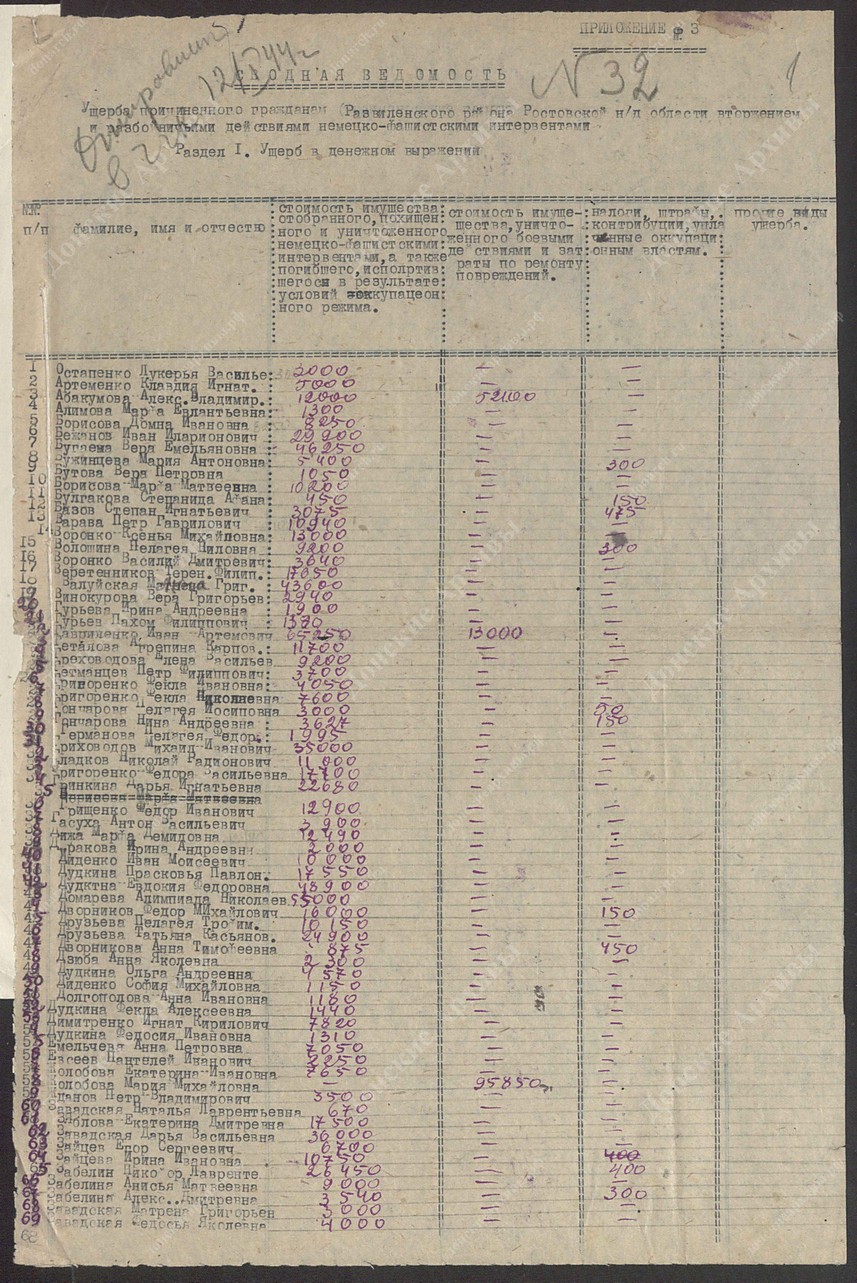 ПРИЛОЖЕНИЕ № 3
12/I 44 г
N 32
1
СВОДНАЯ ВЕДОМОСТЬ
Ущерба причиненного гражданам (Развиленского района Ростовской н/д области вторжением
и разбойничьими действиями немецко-фашистскими интервентами
Раздел I. Ущерб в денежном выражении
№№ п/п
Фамилие, имя и отчество
стоимость имущества отобранного, похищенного и уничтоженного немецко-фашистскими интервентами, а также погибшего, исполртившегося в результате условий оккупацеонного режима.
стоимость имущества, уничтоженного боевыми действиями и затраты по ремонту повреждений.
налоги, штрафы, контрибуции, уплаченные оккупационным властям.
прочие виды ущерба.
1 Остапенко Лукерья Василье: 2000
2 Артеменко Клавдия Игнат. : 5000
3 Абакумова Алекс.Владимир.: 12000 52100
4 Алимова Марфа Евлантьевна: 1300
5 Борисова Домна Ивановна : 8250
6 Бежанов Иван Иларионович : 29900
7 Бугаева Вера Емельяновна : 46250
8 Бужинцева Мария Антоновна: 5400 300
9 Бутова Вера Петровна : 1050
10 Борисова Марфа Матвеевна : 10200
11 Булгакова Степанида : 450 150
12 Вазов Степан Игнатьевич : 3075 475
13 Варава Петр Гаврилович : 10940
14 Воронко Ксенья Михайловна: 13000
15 Волошина Пелагея Ниловна : 9200 200
16 Воронко Василий Дмитревич: 3640
17 Веретенников Терен.Филип.: 17050
18 Валуйская Григ. : 43600
19 Винокурова Вера Григорьев: 2940
Гурьева Ирина Андреевна : 1900
Гурьев Пахом Филиппович : 1370
Гавриленко Иван Артемович 65250 13000
Геталова Агрепина Карпов.: 11700
Греховодова Елена Васильев 9200
Гетманцев Петр Филиппович: 3700
Григоренко Фекла Ивановна: 4050
Григоренко Фекла Николаевна 7600
Гончарова Пелагея Иосиповна 3000 50
Гончарова Нина Андреевна : 3627 150
Германова Пелагея Федор. : 1995
Греховодов Михаил Иванович 35000
Гладков Николай Радионович 11000
Григоренко Федора Васильевна 17700
Гринкина Дарья Игнатьевна 22680
Грищенко Федор Иванович 12900
Гасуха Антон Васильевич 3900
Дижа Марфа Демидовна 12490
Дуракова Ирина Андреевна 3000
Диденко Иван Моисеевич 10000
Дудкина Прасковья Павлон. 17550
Дудктна Евдокия Федоровна 48900
Домарева Алимпиада Николаев 55000
Дворников Федор МИхайлович 16000 150
Друзьева Пелагея Трофим. 10150
Друзьева Татьяна Касьянов. 24900
Дворникова Анна Тимофеевна 875 450
Дзюба Анна Яколевна 2300
Дудкина Ольга Андреевна 1570
Диденко София Михайловна 1150
Долгополова Анна Ивановна 1180
Дудкина Фекла Алексеевна 1440
Димитренко Игнат Кирилович 7820
Дудкина Федосия Ивановна 1310
Емельчева Анна Петровна 7050
Евсеев Пантелей Иванович 2250
Жолобова Екатерина Ивановна 7650
Жолобова Мария Михайловна — 95850
Жданов Петр Владимирович 3500
60 Завадская Наталья Лаврентьевна 670
61 Заблова Екатерина Дмитревна 17500
62 Завадская Дарья Васильевна 36000
63 Зайцев Егор Сергеевич 6700
64 Зайцева Ирина Ивановна 10750 400
65 Забелин Никифор Лавренте 26450 400
66 Забелина Анисья Матвеевна 9000
67 Забелина Алекс..Дмитревна 3540 300
68 Завадская Матрена Григорьен 3000
69 Завадская Федосья Яколевна 4000